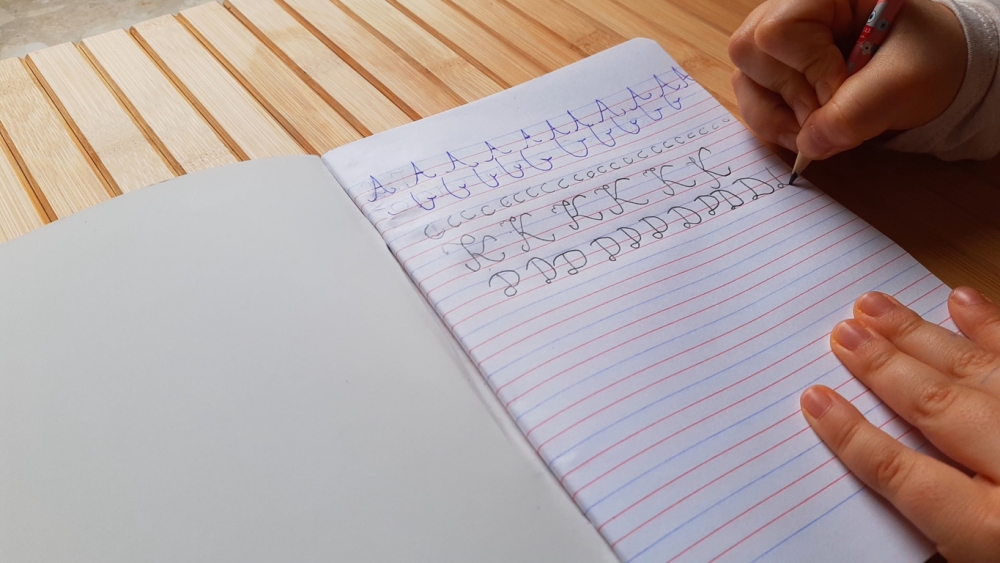 A A A A A A A A A A A
G G G G G G G G G G
c c c c c c c c c c c c c c c c c c c c c c
K K K K K K
D D D D D D D D D D D